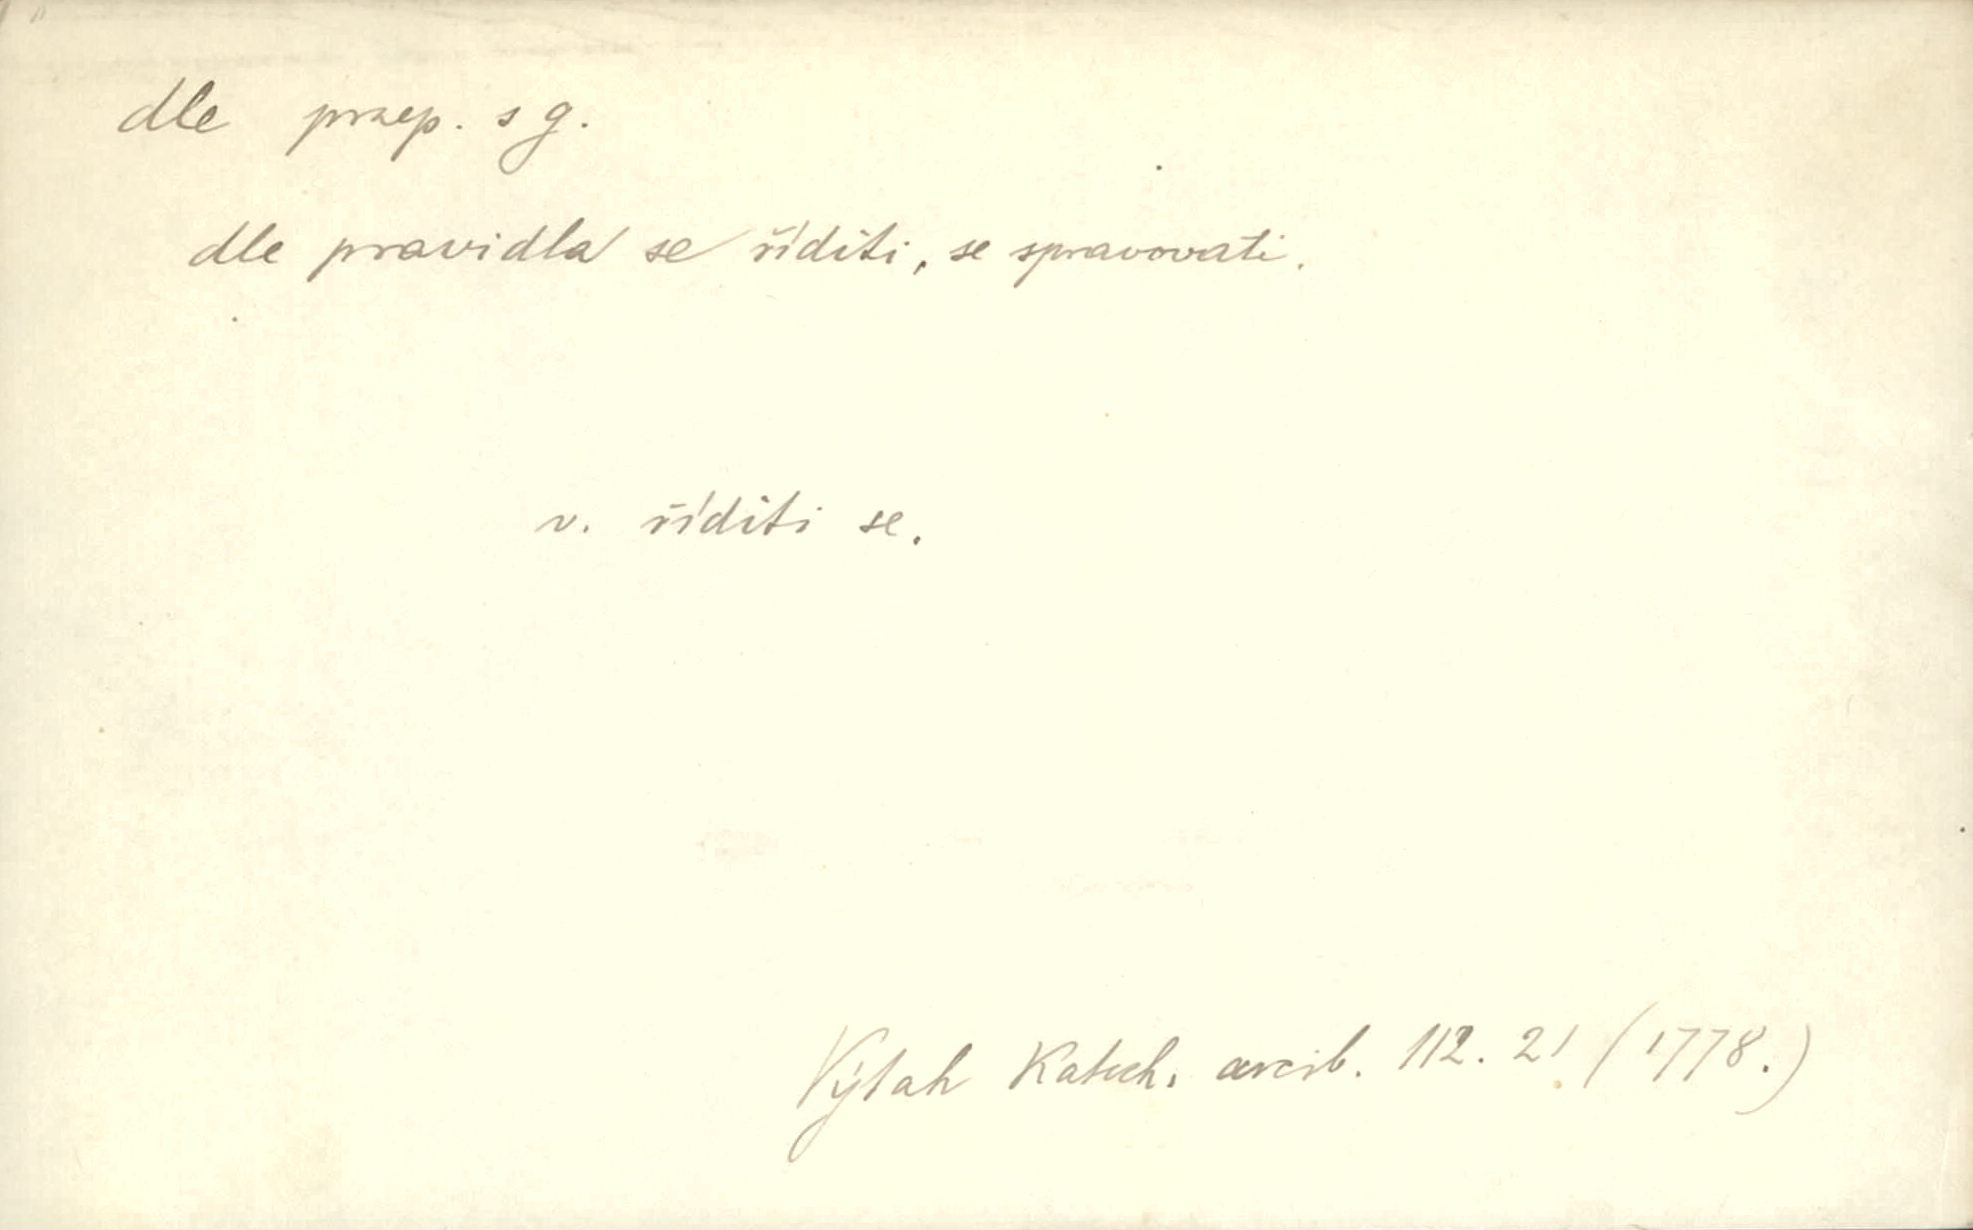 dle praep. s g.
dle pravidla se říditi, se spravovati.
v. říditi se.
Výtah Katech. arcib. 112. 21 (1778.)